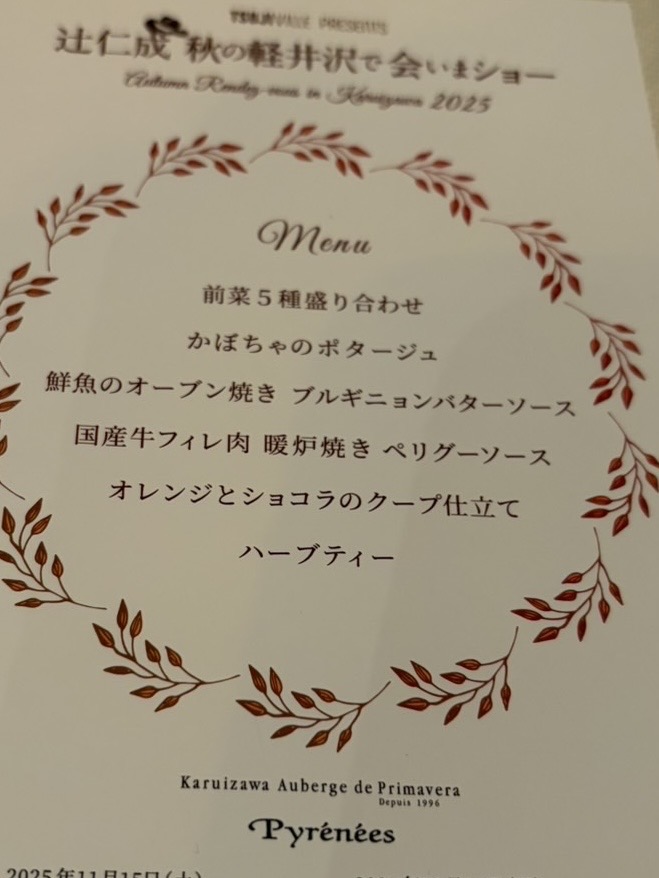 TSUJIVILLE PRESENTS
辻仁成 秋の軽井沢で会いまショー
Autumn Rendez-vous in Karuizawa 2025
Menu
前菜5種盛り合わせ
かぼちゃのポタージュ
鮮魚のオーブン焼き ブルギニョンバターソース
国産牛フィレ肉 暖炉焼き ペリグーソース
オレンジとショコラのクープ仕立て
ハーブティー
Karuizawa Auberge de Primavera
Depuis 1996
Pyrénées
2025年11月15日(土)